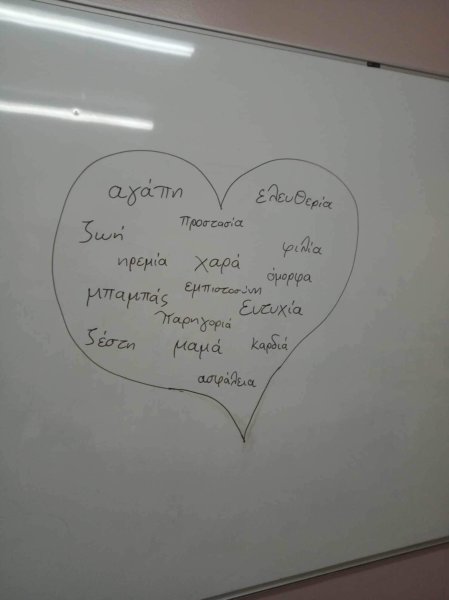 αγάπη ελευθερία
προστασία
ζωή φιλία
ηρεμία χαρά όμορφα
μπαμπάς εμπιστοσύνη ευτυχία
παρηγοριά
ζέστη μαμά καρδιά
ασφάλεια